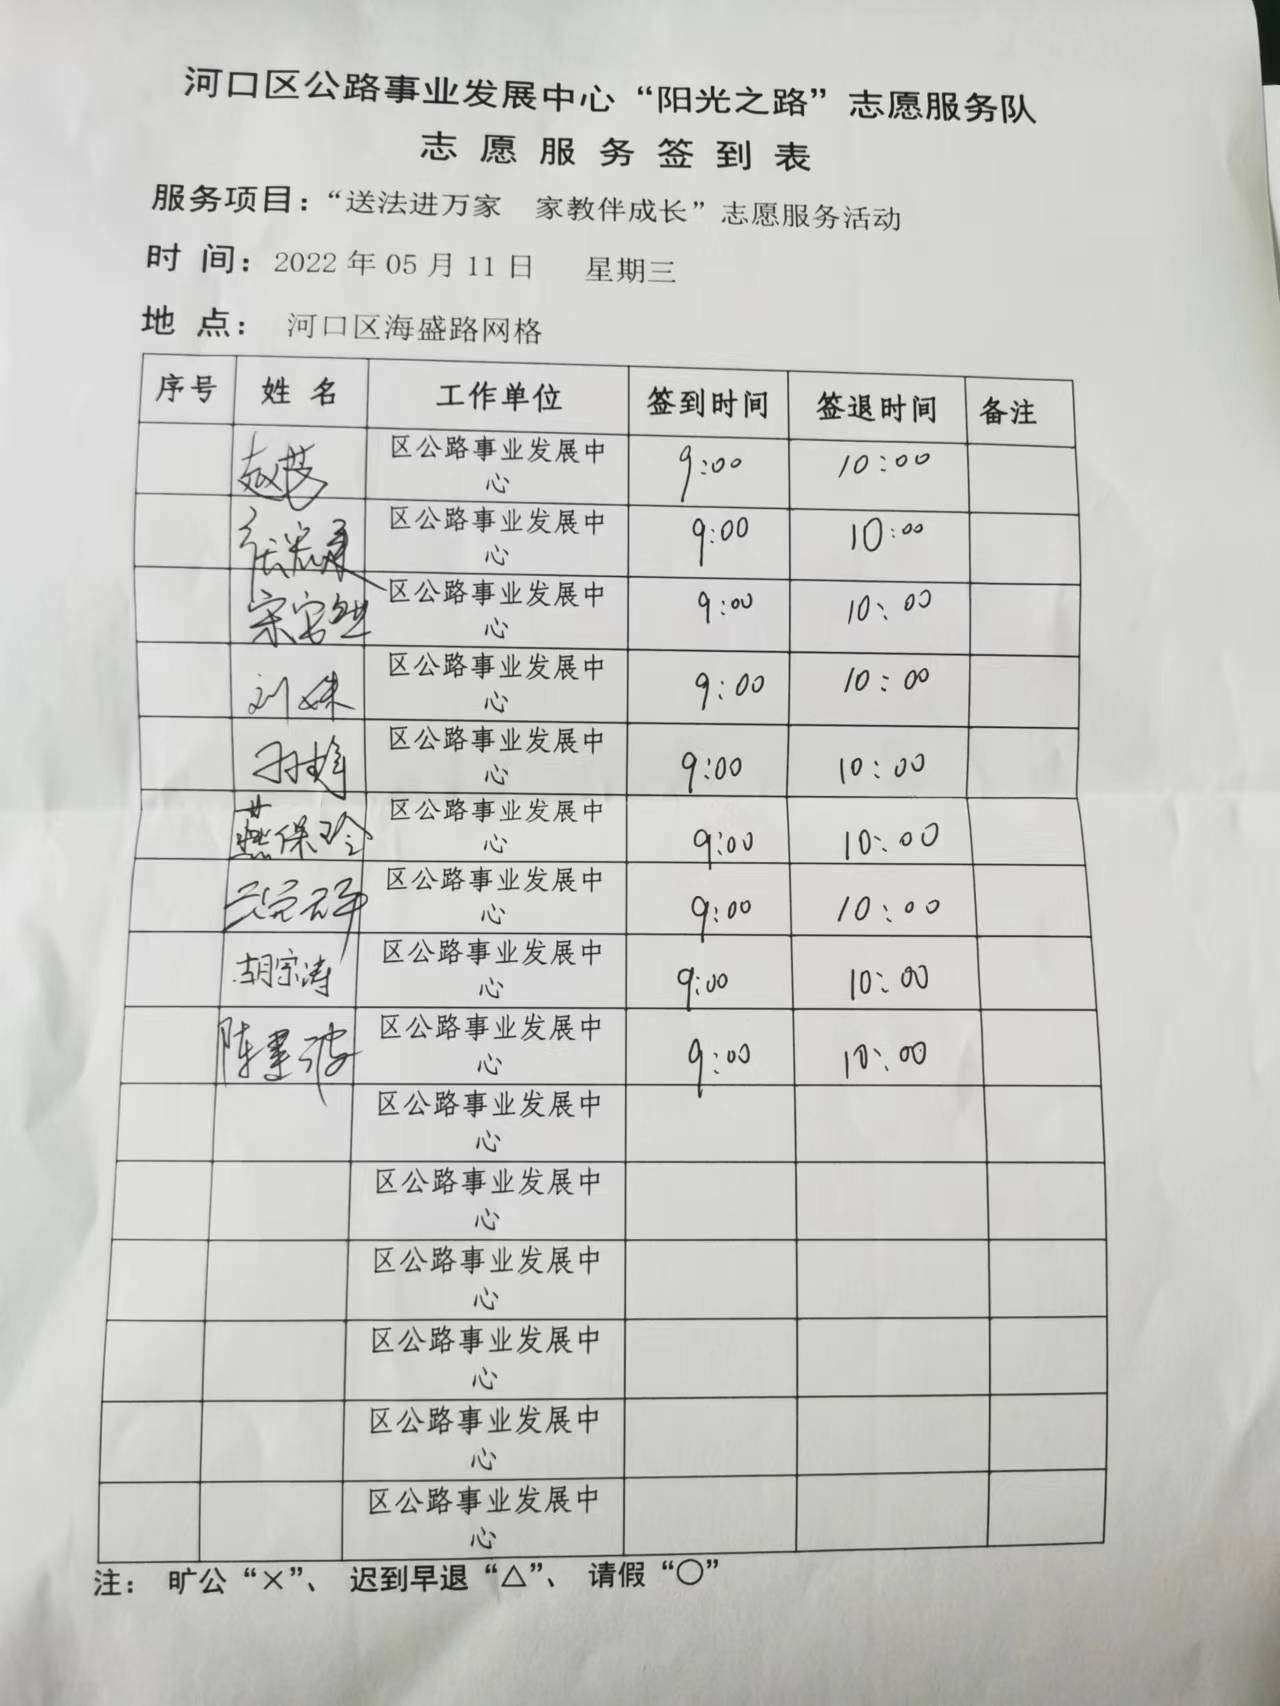 河口区公路事业发展中心“阳光之路”志愿服务队
志愿服务签到表
服务项目：“送法进万家 家教伴成长”志愿服务活动
时 间：2022年05月11日 星期三
地 点： 河口区海盛路网格
序号 姓名 工作单位 签到时间 签退时间 备注
区公路事业发展中
心
9:00 10:00
区公路事业发展中
心
9:00 10:00
区公路事业发展中
心
9:00 10:00
刘姝 区公路事业发展中
心
9:00 10:00
区公路事业发展中
心
9:00 10:00
燕保玲 区公路事业发展中
心
9:00 10:00
区公路事业发展中
心
9:00 10:00
胡宗涛 区公路事业发展中
心
9:00 10:00
陈建波 区公路事业发展中
心
9:00 10:00
区公路事业发展中
心
区公路事业发展中
心
区公路事业发展中
心
区公路事业发展中
心
区公路事业发展中
心
区公路事业发展中
心
注： 旷公“×”、 迟到早退“△”、 请假“○”